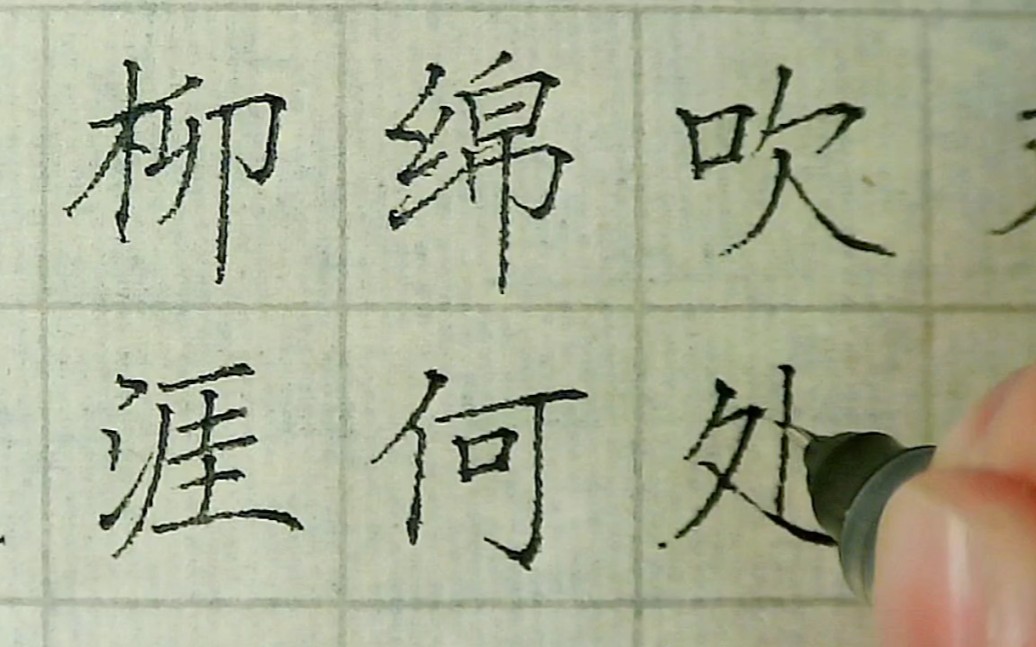 柳绵吹
涯何处